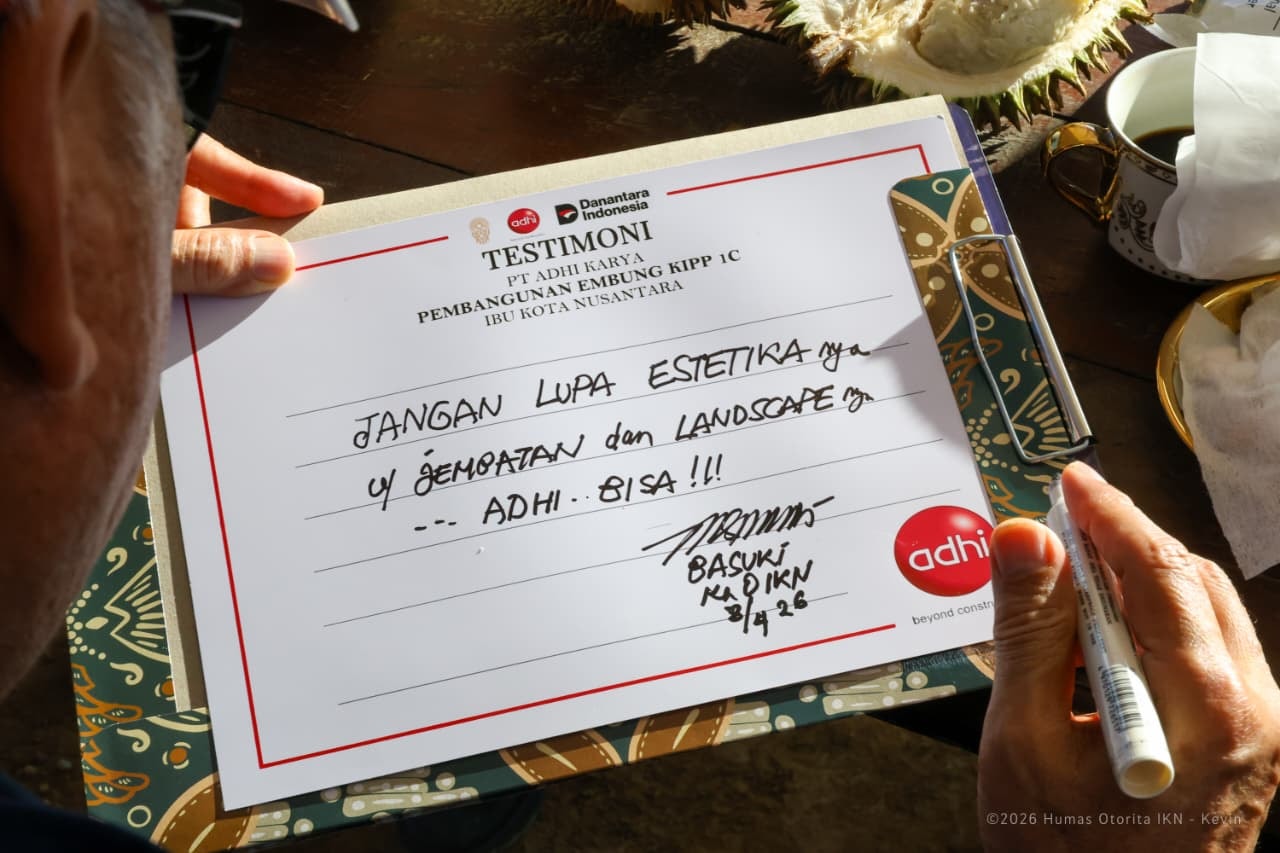 adhi
Danantara
Indonesia
TESTIMONI
PT ADHI KARYA
PEMBANGUNAN EMBUNG KIPP 1C
IBU KOTA NUSANTARA
JANGAN LUPA ESTETIKA nya
u/ JEMBATAN dan LANDSCAPE nya
--- ADHI.. BISA !!!
BASUKI
Ka OIKN
8/4 26
adhi
beyond constru
©2026 Humas Otorita IKN - Kevin